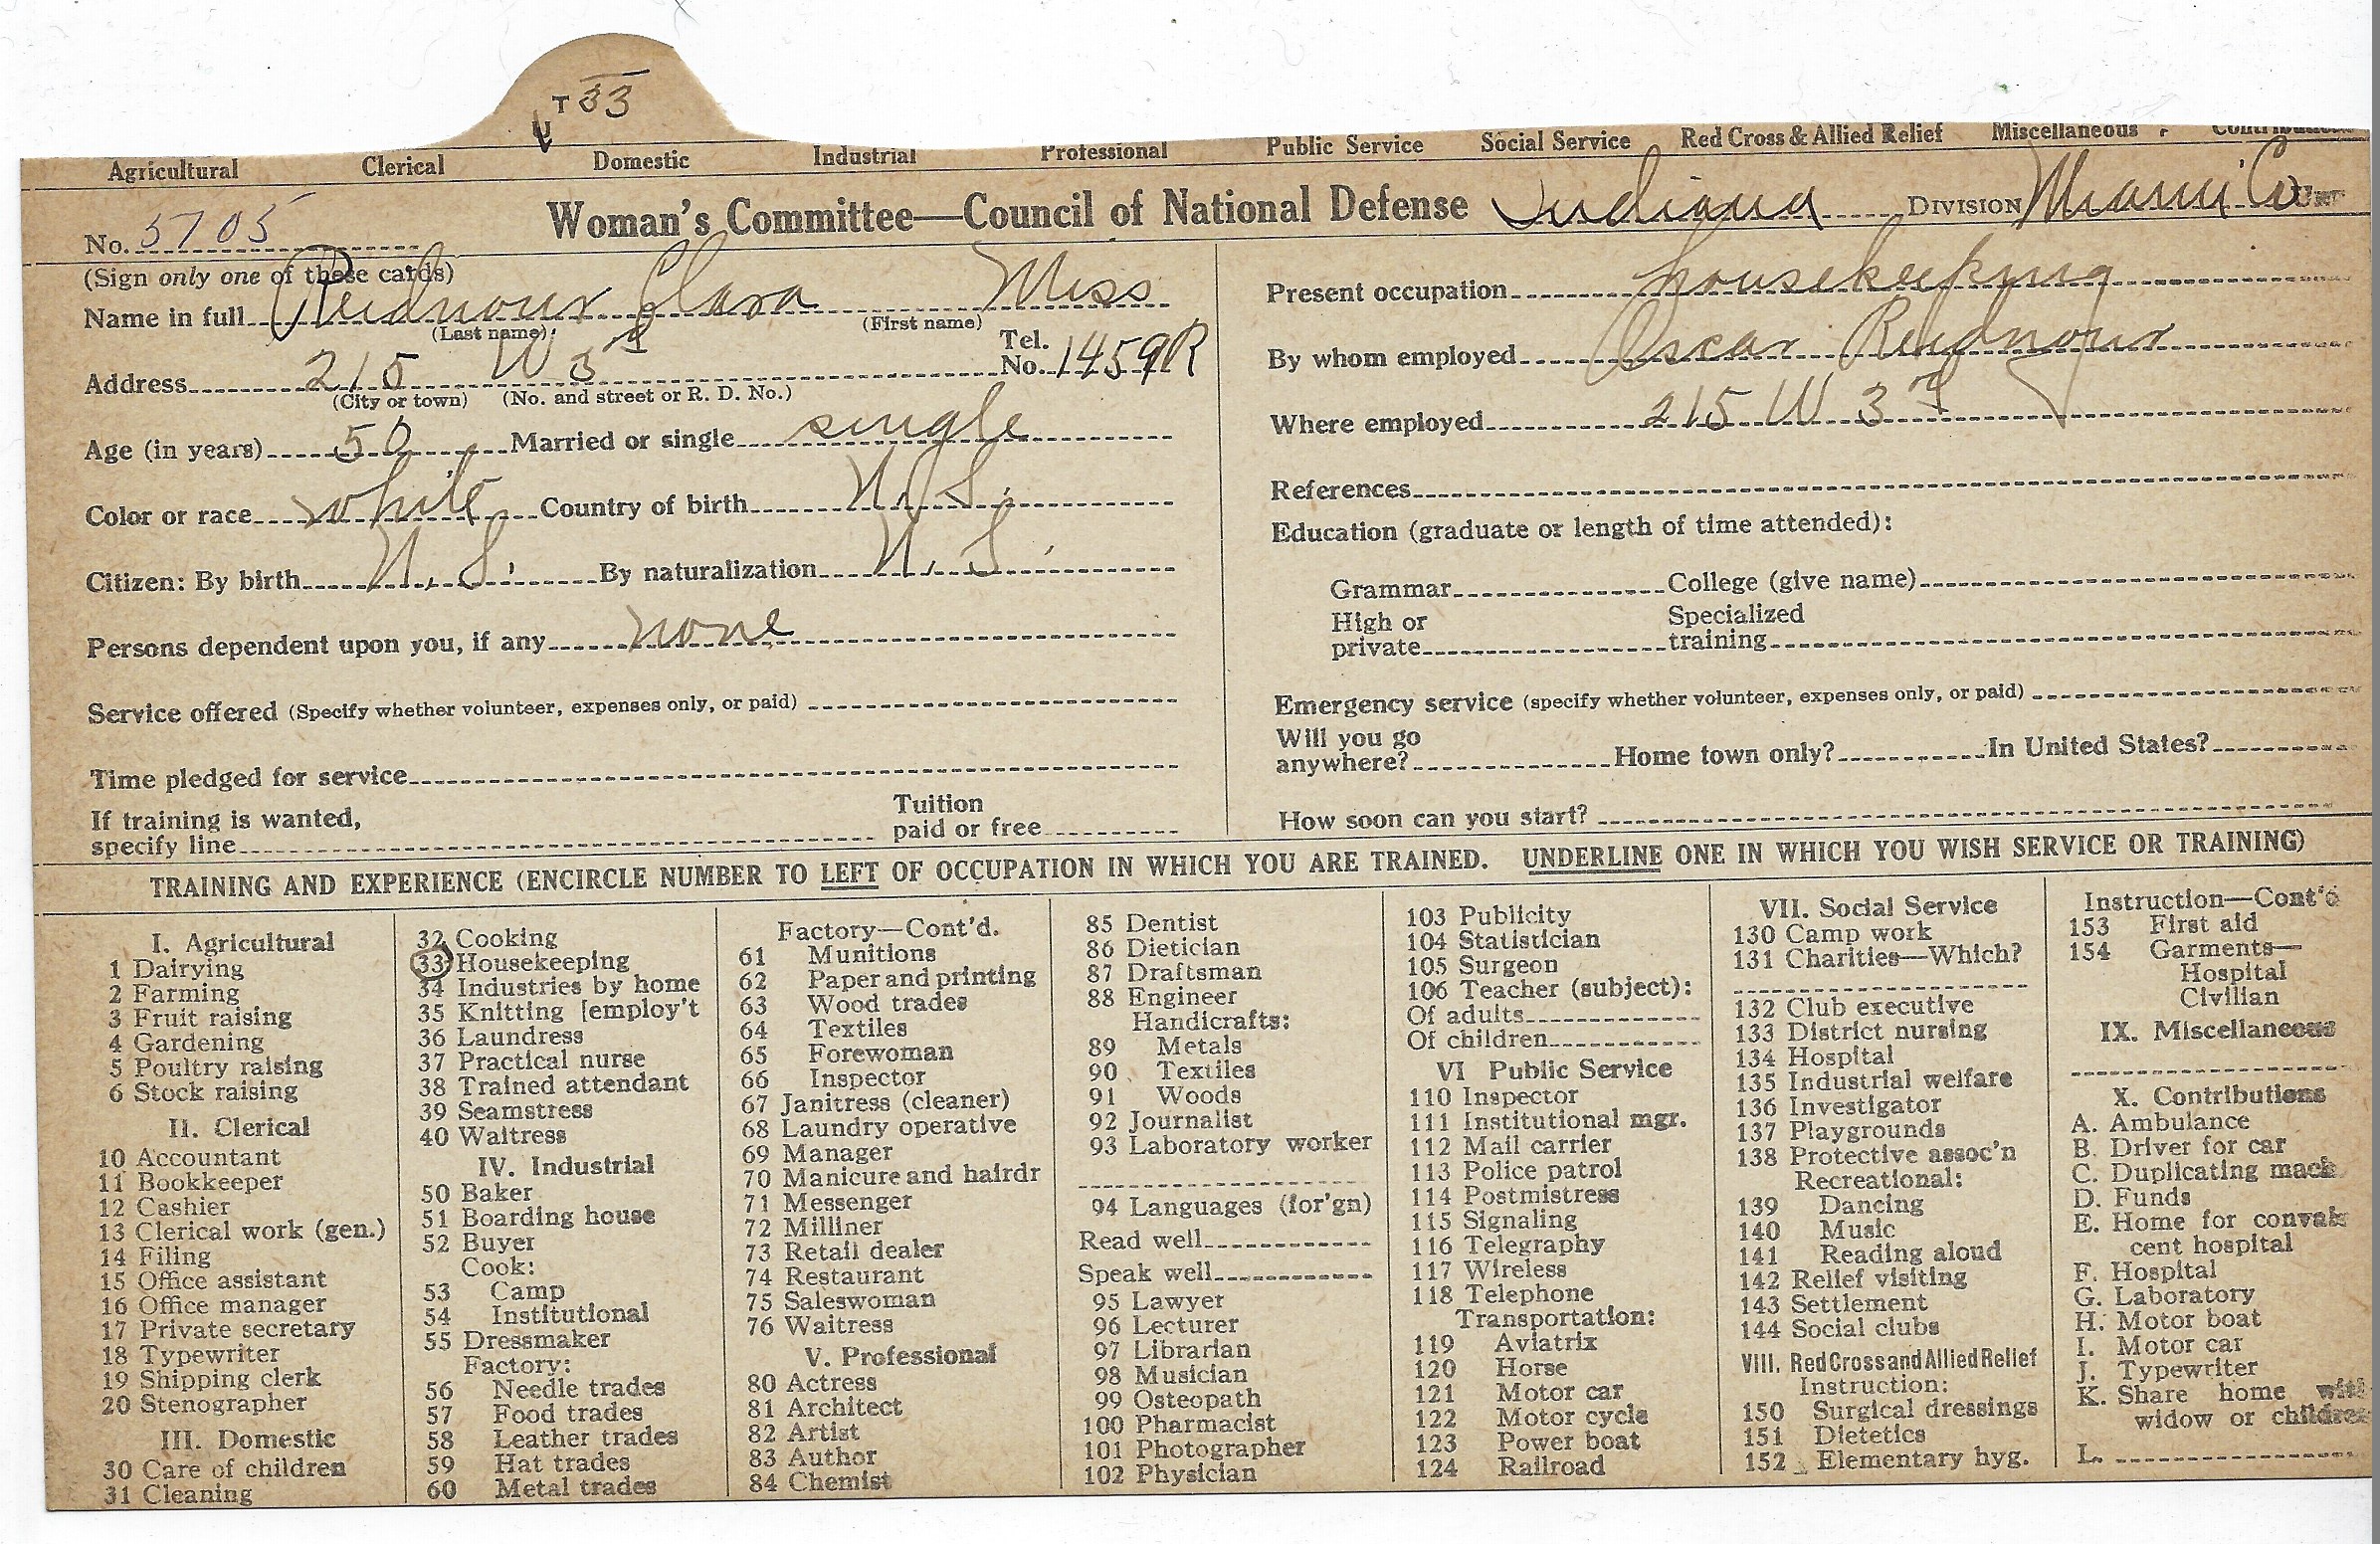 T 33
Agricultural Clerical Domestic Industrial Professional Public Service Social Service Red Cross & Allied Relief Miscellaneous
No. 5705 Woman's Committee—Council of National Defense Indiana DIVISION Miami Co
(Sign only one of these cards)
Name in full Reidnour Clara Miss
(Last name) (First name)
Address 215 W 3rd Tel. No. 1459R
(City or town) (No. and street or R. D. No.)
Age (in years) 50 Married or single single
Color or race white Country of birth U. S.
Citizen: By birth U. S. By naturalization U. S.
Persons dependent upon you, if any none
Service offered (Specify whether volunteer, expenses only, or paid)
Time pledged for service
If training is wanted, specify line Tuition paid or free
Present occupation housekeeping
By whom employed Oscar Reidnour
Where employed 215 W 3rd
References
Education (graduate or length of time attended):
Grammar College (give name)
High or private Specialized training
Emergency service (specify whether volunteer, expenses only, or paid)
Will you go anywhere? Home town only? In United States?
How soon can you start?
TRAINING AND EXPERIENCE (ENCIRCLE NUMBER TO LEFT OF OCCUPATION IN WHICH YOU ARE TRAINED. UNDERLINE ONE IN WHICH YOU WISH SERVICE OR TRAINING)
I. Agricultural
1 Dairying
2 Farming
3 Fruit raising
4 Gardening
5 Poultry raising
6 Stock raising
II. Clerical
10 Accountant
11 Bookkeeper
12 Cashier
13 Clerical work (gen.)
14 Filing
15 Office assistant
16 Office manager
17 Private secretary
18 Typewriter
19 Shipping clerk
20 Stenographer
III. Domestic
30 Care of children
31 Cleaning
32 Cooking
33 Housekeeping
34 Industries by home
35 Knitting [employ't
36 Laundress
37 Practical nurse
38 Trained attendant
39 Seamstress
40 Waitress
IV. Industrial
50 Baker
51 Boarding house
52 Buyer
Cook:
53 Camp
54 Institutional
55 Dressmaker
Factory:
56 Needle trades
57 Food trades
58 Leather trades
59 Hat trades
60 Metal trades
Factory—Cont'd.
61 Munitions
62 Paper and printing
63 Wood trades
64 Textiles
65 Forewoman
66 Inspector
67 Janitress (cleaner)
68 Laundry operative
69 Manager
70 Manicure and hairdr
71 Messenger
72 Milliner
73 Retail dealer
74 Restaurant
75 Saleswoman
76 Waitress
V. Professional
80 Actress
81 Architect
82 Artist
83 Author
84 Chemist
85 Dentist
86 Dietician
87 Draftsman
88 Engineer
Handicrafts:
89 Metals
90 Textiles
91 Woods
92 Journalist
93 Laboratory worker
94 Languages (for'gn)
Read well
Speak well
95 Lawyer
96 Lecturer
97 Librarian
98 Musician
99 Osteopath
100 Pharmacist
101 Photographer
102 Physician
103 Publicity
104 Statistician
105 Surgeon
106 Teacher (subject):
Of adults
Of children
VI Public Service
110 Inspector
111 Institutional mgr.
112 Mail carrier
113 Police patrol
114 Postmistress
115 Signaling
116 Telegraphy
117 Wireless
118 Telephone
Transportation:
119 Aviatrix
120 Horse
121 Motor car
122 Motor cycle
123 Power boat
124 Railroad
VII. Social Service
130 Camp work
131 Charities—Which?
132 Club executive
133 District nursing
134 Hospital
135 Industrial welfare
136 Investigator
137 Playgrounds
138 Protective assoc'n
Recreational:
139 Dancing
140 Music
141 Reading aloud
142 Relief visiting
143 Settlement
144 Social clubs
VIII. Red Cross and Allied Relief
Instruction:
150 Surgical dressings
151 Dietetics
152 Elementary hyg.
Instruction—Cont'd
153 First aid
154 Garments—
Hospital
Civilian
IX. Miscellaneous
X. Contributions
A. Ambulance
B. Driver for car
C. Duplicating mach
D. Funds
E. Home for convales
cent hospital
F. Hospital
G. Laboratory
H. Motor boat
I. Motor car
J. Typewriter
K. Share home with
widow or children
L.